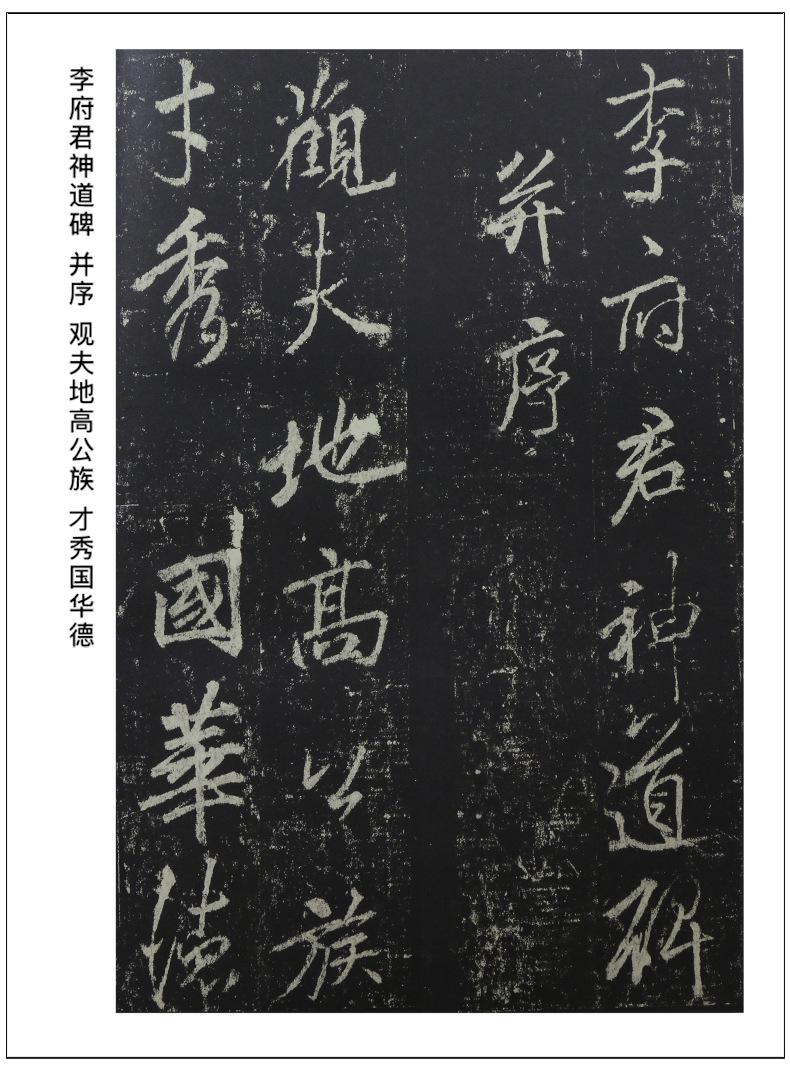 李府君神道碑
并序
觀夫地高公族
才秀國華德
李府君神道碑 并序 观夫地高公族 才秀国华德